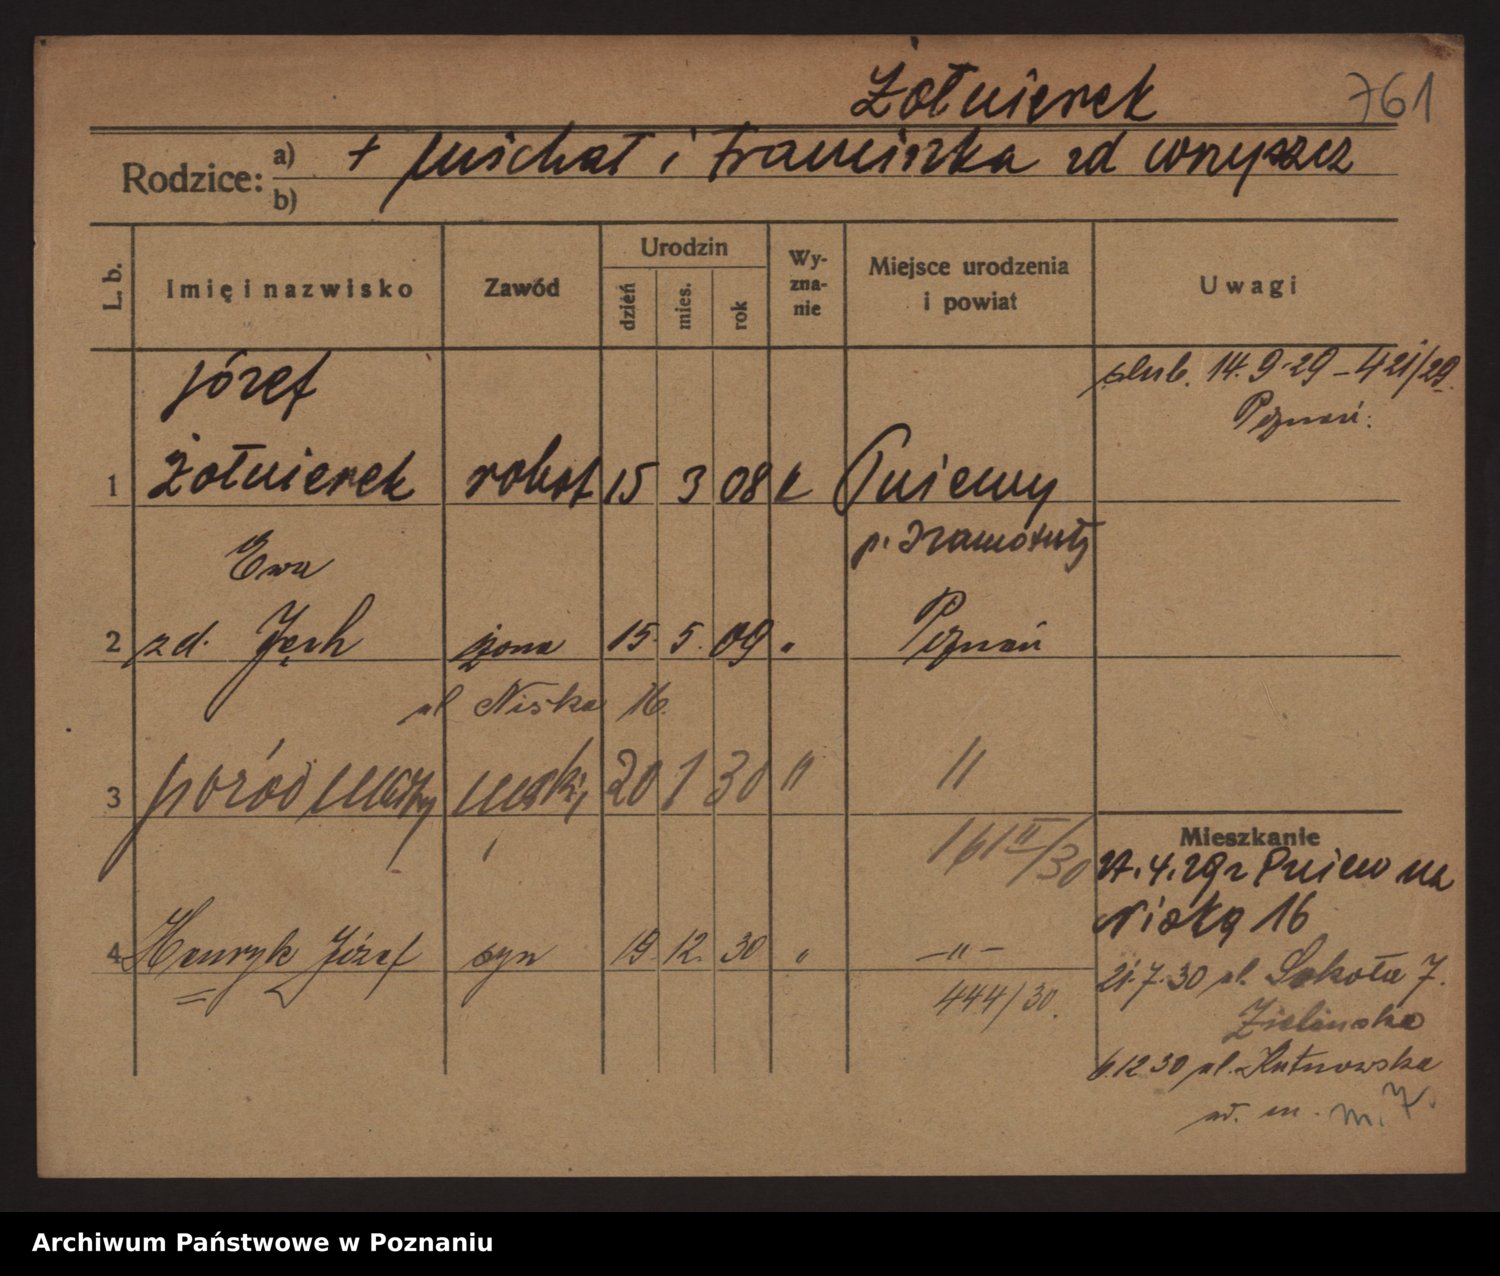 Żołnierek 761
Rodzice: a) + Michał i Franciszka zd Wnyszcz
b)
L. b. Imię i nazwisko Zawód Urodzin dzień mies. rok Wyznanie Miejsce urodzenia i powiat Uwagi
Józef ślub. 14.9.29 – 421/29.
Poznań.
1 Żołnierek robot 15 3 08 k Pniewy
Ewa p. Szamotuły
2 zd. Jęch żona 15. 5. 09 " Poznań
ul Niska 16.
3 poród martwy męski, 20 1 30 " "
161 II/30
Mieszkanie
4.29 z Pniew na
Niską 16
4 Henryk Józef syn 19. 12. 30 " –"–
21.7.30 ul. Sokoła 7.
444/30.
Zielinska
6.12.30 ul. Kutnowska
m. 7.
Archiwum Państwowe w Poznaniu